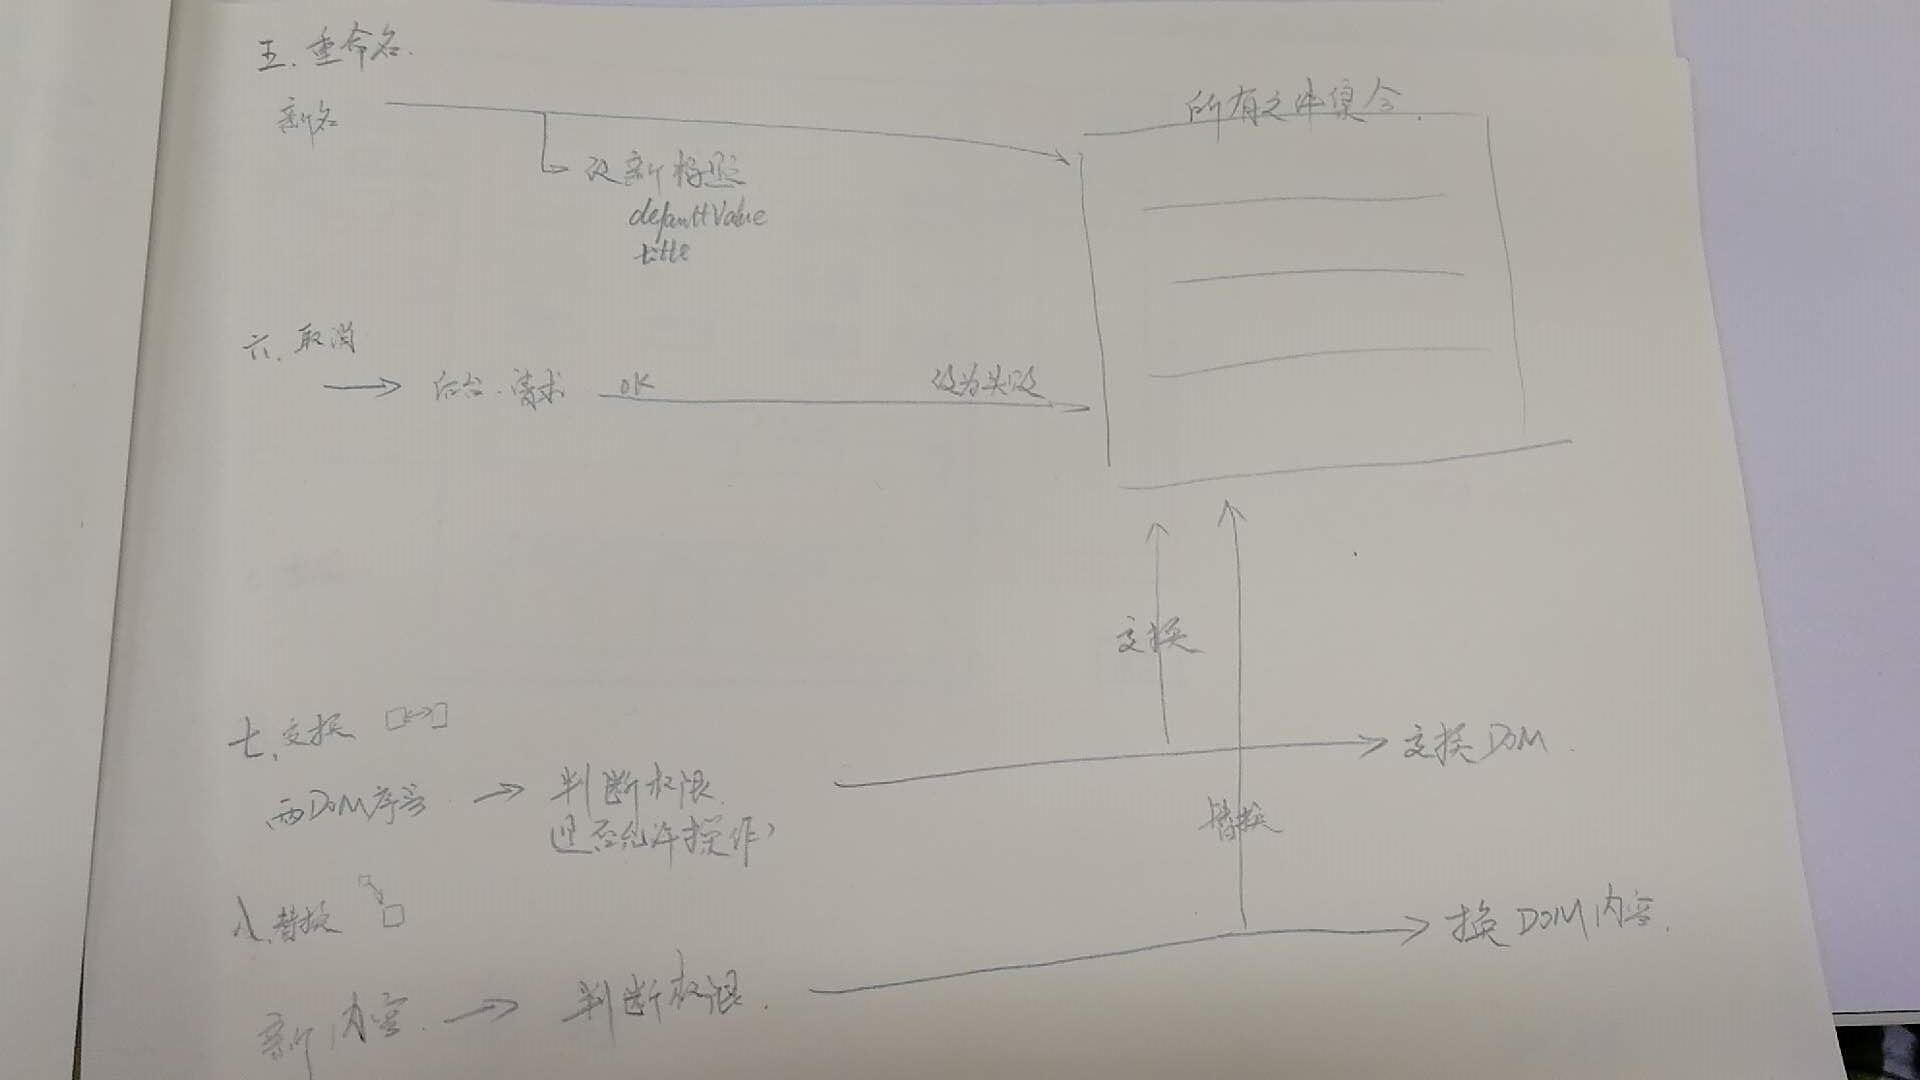 五.重命名.
新名
所有文件集合.
设新标题
defaultValue
title
六.取消
后台.请求
OK
设为失败
交换
七.交换
两DOM序号
判断权限.
(是否允许操作)
交换DOM.
替换
八.替换
新内容.
判断权限.
换DOM内容.